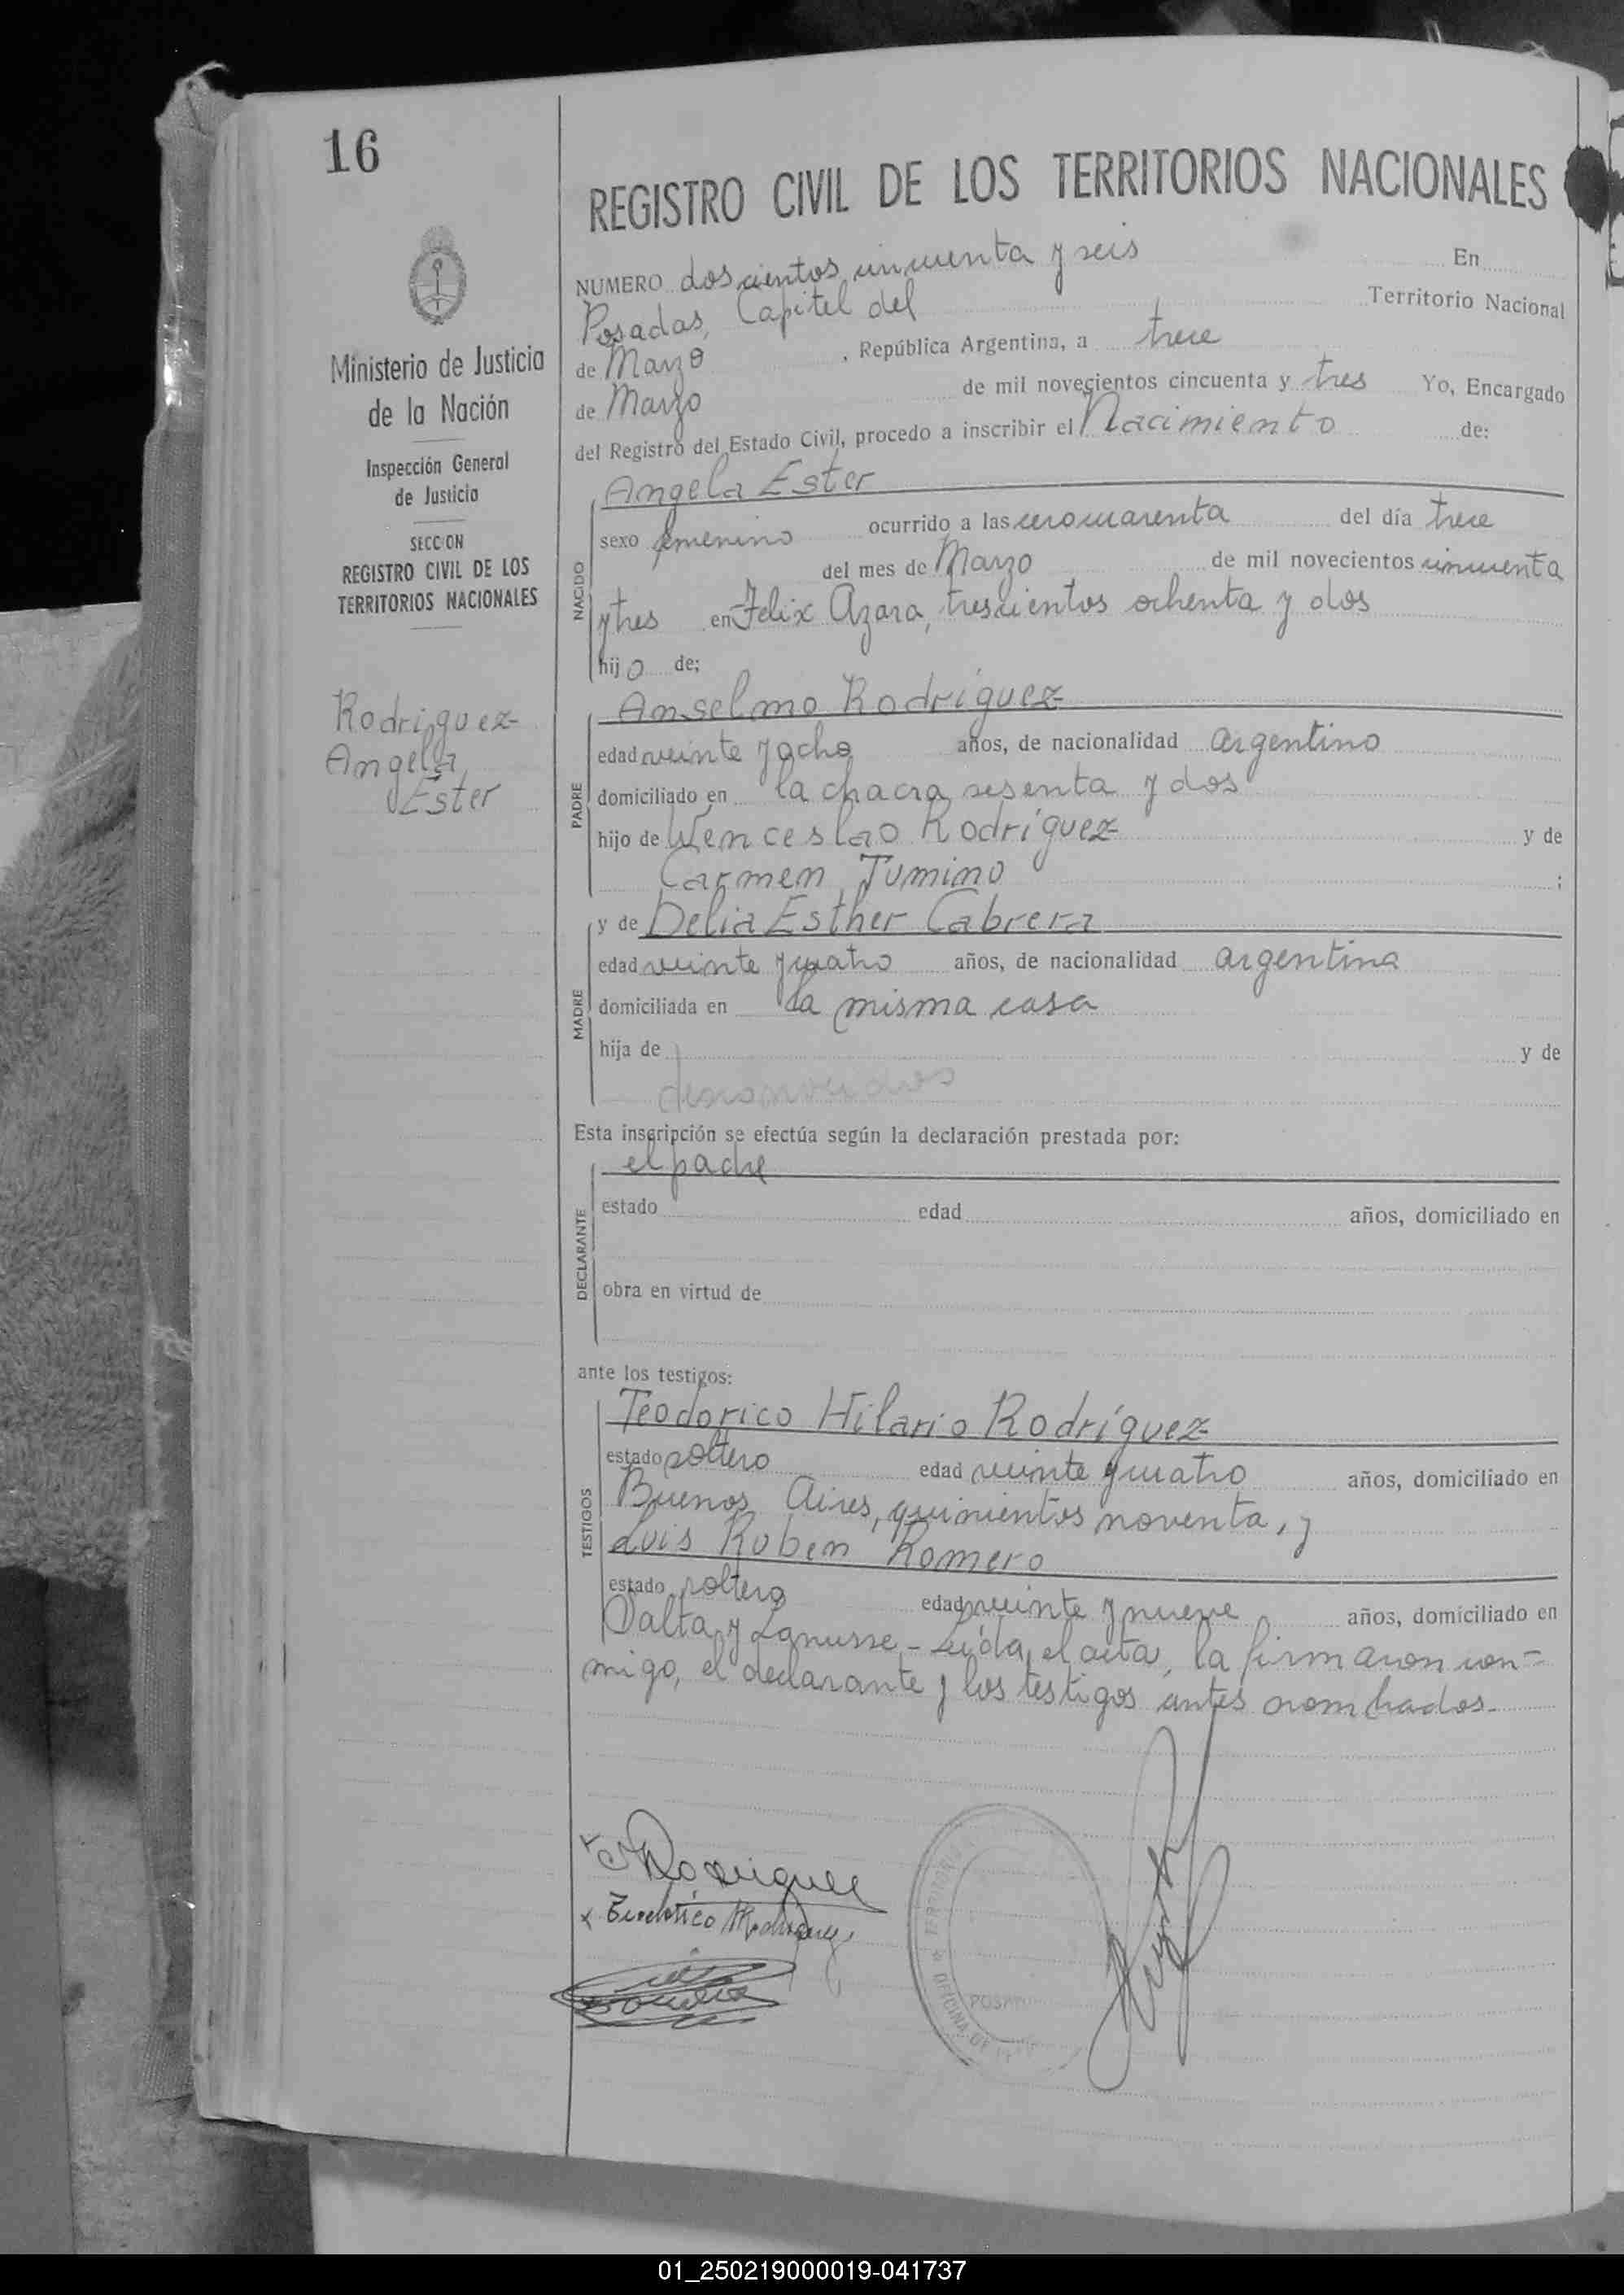 16
REGISTRO CIVIL DE LOS TERRITORIOS NACIONALES
Ministerio de Justicia
de la Nación
Inspección General
de Justicia
SECCION
REGISTRO CIVIL DE LOS
TERRITORIOS NACIONALES
Rodriguez
Angela
Ester
NUMERO doscientos cincuenta y seis En
Posadas, Capitel del Territorio Nacional
de Marzo, República Argentina, a trece
de Marzo de mil novecientos cincuenta y tres Yo, Encargado
del Registro del Estado Civil, procedo a inscribir el Nacimiento de:
Angela Ester
NACIDO
sexo femenino ocurrido a las cerocuarenta del día trece
del mes de Marzo de mil novecientos cincuenta
y tres en Felix Azara, trescientos ochenta y dos
hijo de;
Anselmo Rodríguez
PADRE
edad veinte y ocho años, de nacionalidad argentino
domiciliado en la chacra sesenta y dos
hijo de Wenceslao Rodríguez y de
Carmen Tumino ;
y de Delia Esther Cabrera
MADRE
edad veinte y cuatro años, de nacionalidad argentina
domiciliada en la misma casa
hija de y de
Esta inscripción se efectúa según la declaración prestada por:
el padre
DECLARANTE
estado edad años, domiciliado en
obra en virtud de
ante los testigos:
Teodorico Hilario Rodríguez
TESTIGOS
estado soltero edad veinte y cuatro años, domiciliado en
Buenos Aires, quinientos noventa, y
Luis Ruben Romero
estado soltero edad veinte y nueve años, domiciliado en
Salta y Lanusse - Leída el acta, la firmaron con-
migo, el declarante y los testigos antes nombrados.
Rodriguez
Teodorico H Rodriguez
OFICINA DE
POSAD
01_250219000019-041737